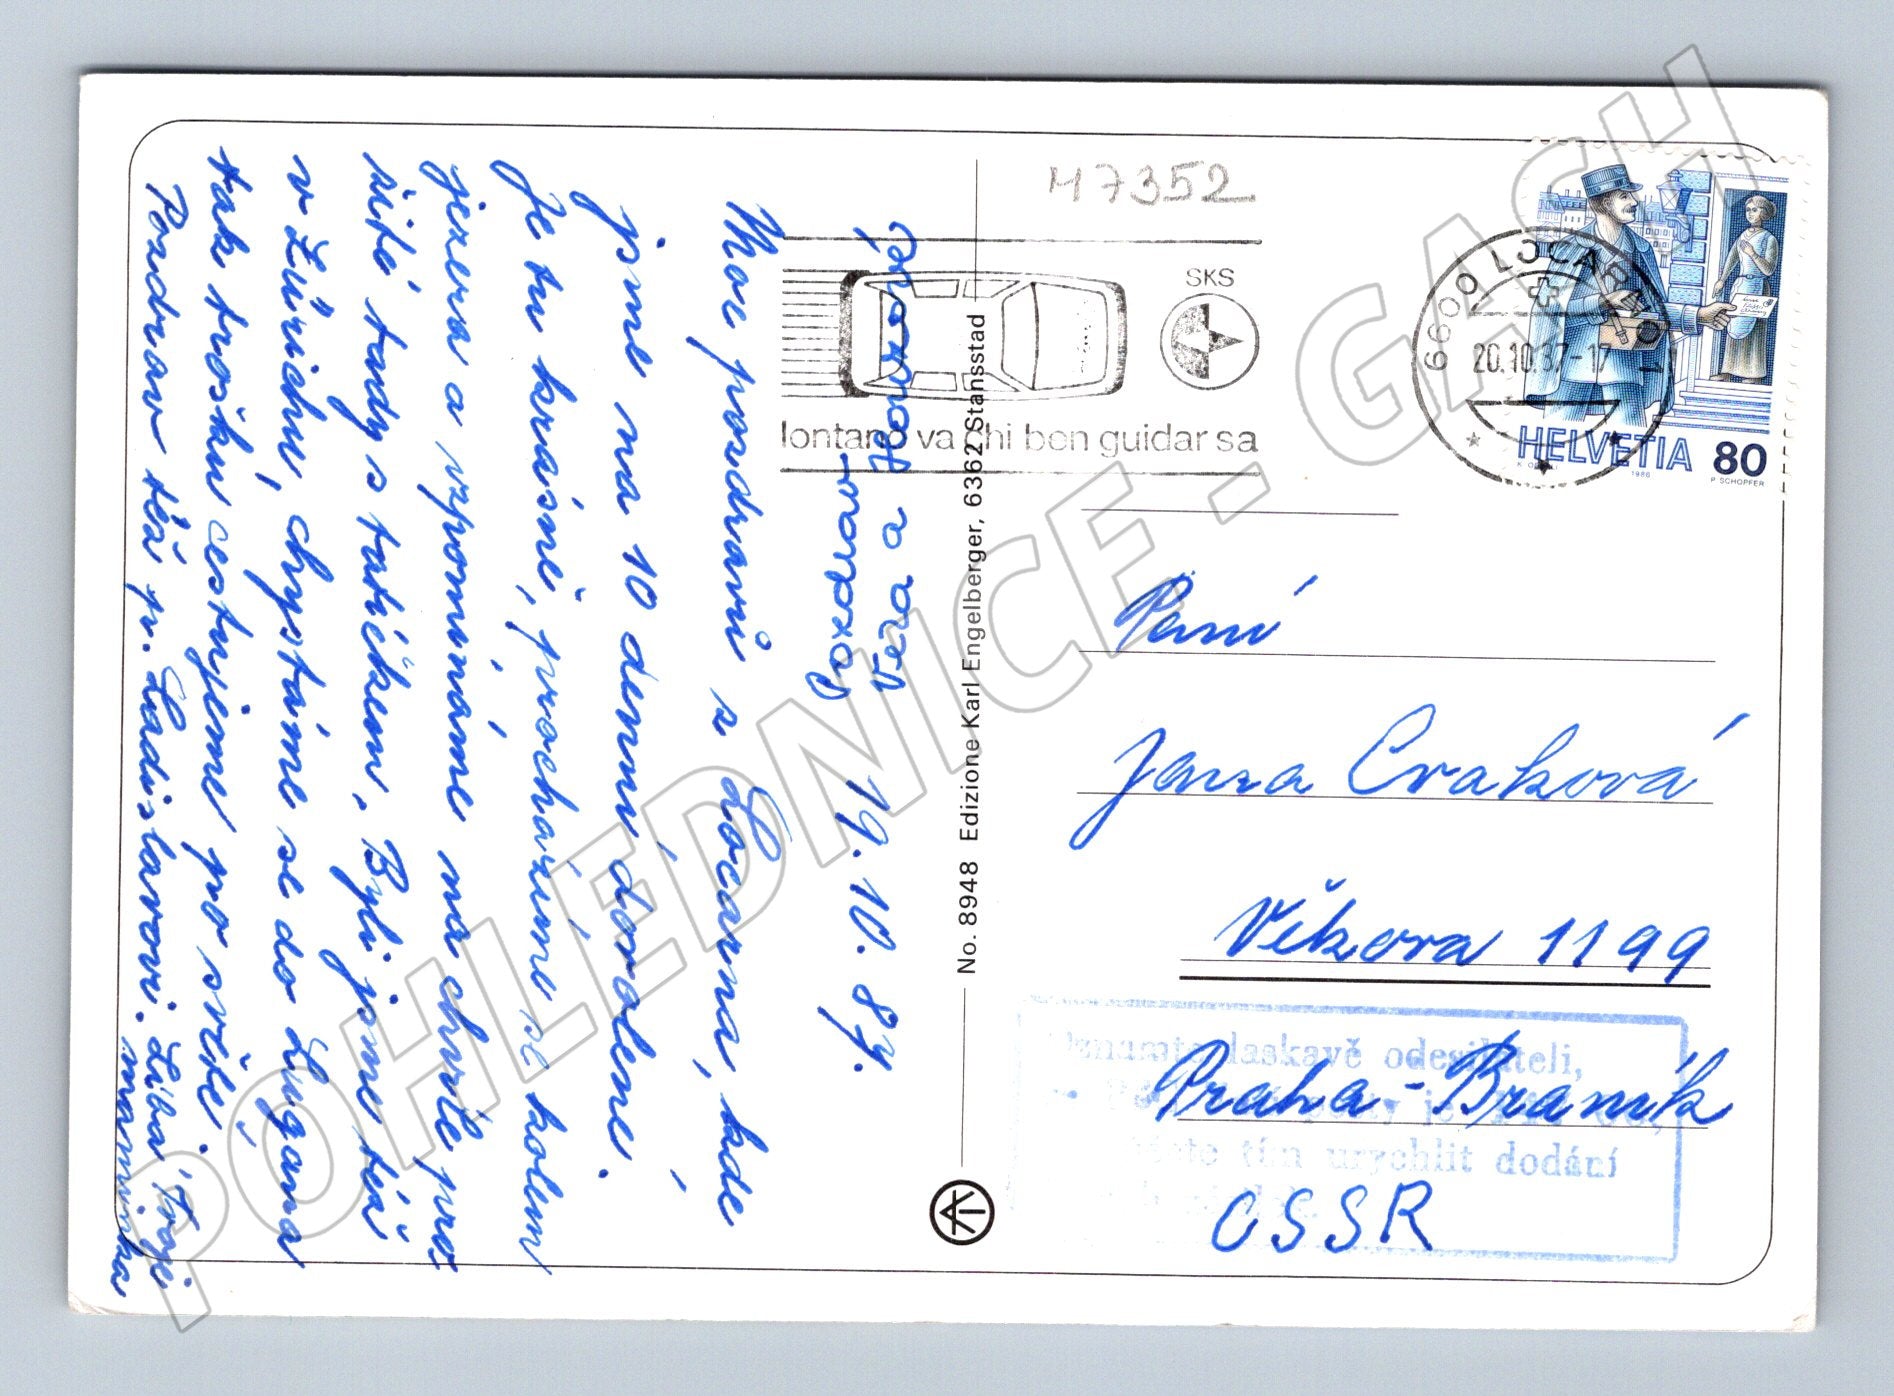 M7352
SKS
lontano va chi ben guidar sa
6600 LOCARNO 1
20.10.87-17
HELVETIA 80
1986
P SCHOPFER
19. 10. 87.
Moc pozdravů z Locarna, kde
jsme na 10 denní dovolené.
Je tu krásně, procházíme se kolem
jezera a vzpomínáme na chvíle pro
žité tady s tatíčkem. Byli jsme též
v Zürichu, chystáme se do Lugana
tak trošku cestujeme po světě.
Pozdrav též p. Ladislavovi. Líba Vás
maminka
pozdrav
Věra a
No. 8948 Edizione Karl Engelberger, 6362 Stansstad
Paní
Jana Crakova
Věkova 1199
Praha-Braník
ČSSR
laskavě odesilateli,
je
tím urychlit dodání
POHLEDNICE - GASH